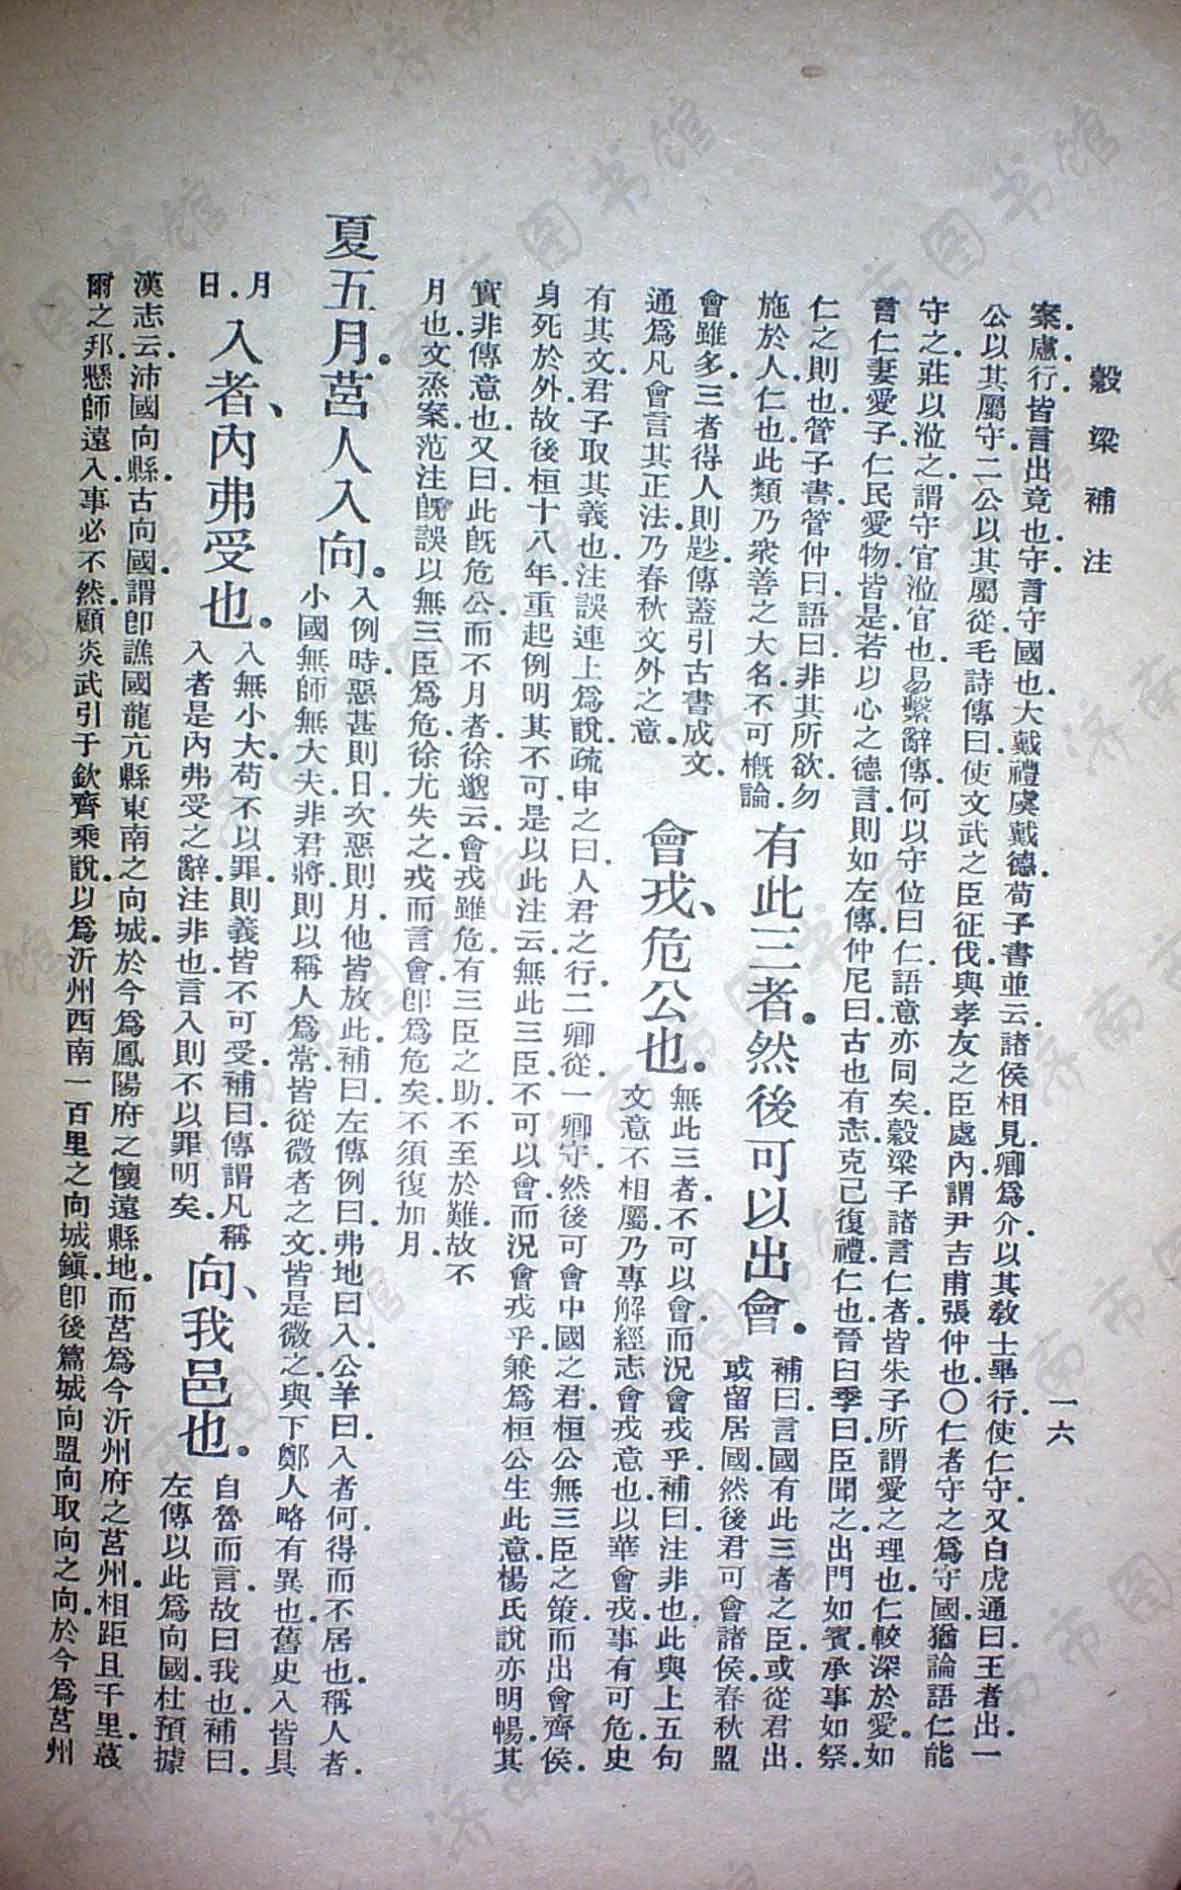 穀梁補注
一六
案慮行皆言出竟也守言守國也大戴禮虞戴德荀子書並云諸侯相見卿爲介以其敎士畢行使仁守又白虎通曰王者出一
公以其屬守二公以其屬從毛詩傳曰使文武之臣征伐與孝友之臣處內謂尹吉甫張仲也〇仁者守之爲守國猶論語仁能
守之莊以涖之謂守官涖官也易繫辭傳何以守位曰仁語意亦同矣穀梁子諸言仁者皆朱子所謂愛之理也仁較深於愛如
言仁妻愛子仁民愛物皆是若以心之德言則如左傳仲尼曰古也有志克己復禮仁也晉臼季曰臣聞之出門如賓承事如祭
仁之則也管子書管仲曰語曰非其所欲勿
施於人仁也此類乃衆善之大名不可槪論
有此三者然後可以出會
補曰言國有此三者之臣或從君出
或留居國然後君可會諸侯春秋盟
會雖多三者得人則尟傳蓋引古書成文
通爲凡會言其正法乃春秋文外之意
會戎、危公也
無此三者不可以會而況會戎乎補曰注非也此與上五句
文意不相屬乃專解經志會戎意也以華會戎事有可危史
有其文君子取其義也注誤連上爲說疏申之曰人君之行二卿從一卿守然後可會中國之君桓公無三臣之策而出會齊侯
身死於外故後桓十八年重起例明其不可是以此注云無此三臣不可以會而況會戎乎兼爲桓公生此意楊氏說亦明暢其
實非傳意也又曰此旣危公而不月者徐邈云會戎雖危有三臣之助不至於難故不
月也文烝案范注旣誤以無三臣爲危徐尤失之戎而言會卽爲危矣不須復加月
夏五月莒人入向
入例時惡甚則日次惡則月他皆放此補曰左傳例曰弗地曰入公羊曰入者何得而不居也稱人者
小國無師無大夫非君將則以稱人爲常皆從微者之文皆是微之與下鄭人略有異也舊史入皆具
月
日
入者、內弗受也
入無小大苟不以罪則義皆不可受補曰傳謂凡稱
入者是內弗受之辭注非也言入則不以罪明矣
向、我邑也
自魯而言故曰我也補曰
左傳以此爲向國杜預據
漢志云沛國向縣古向國謂卽譙國龍亢縣東南之向城於今爲鳳陽府之懷遠縣地而莒爲今沂州府之莒州相距且千里蕞
爾之邦懸師遠入事必不然顧炎武引于欽齊乘說以爲沂州西南一百里之向城鎭卽後篇城向盟向取向之向於今爲莒州